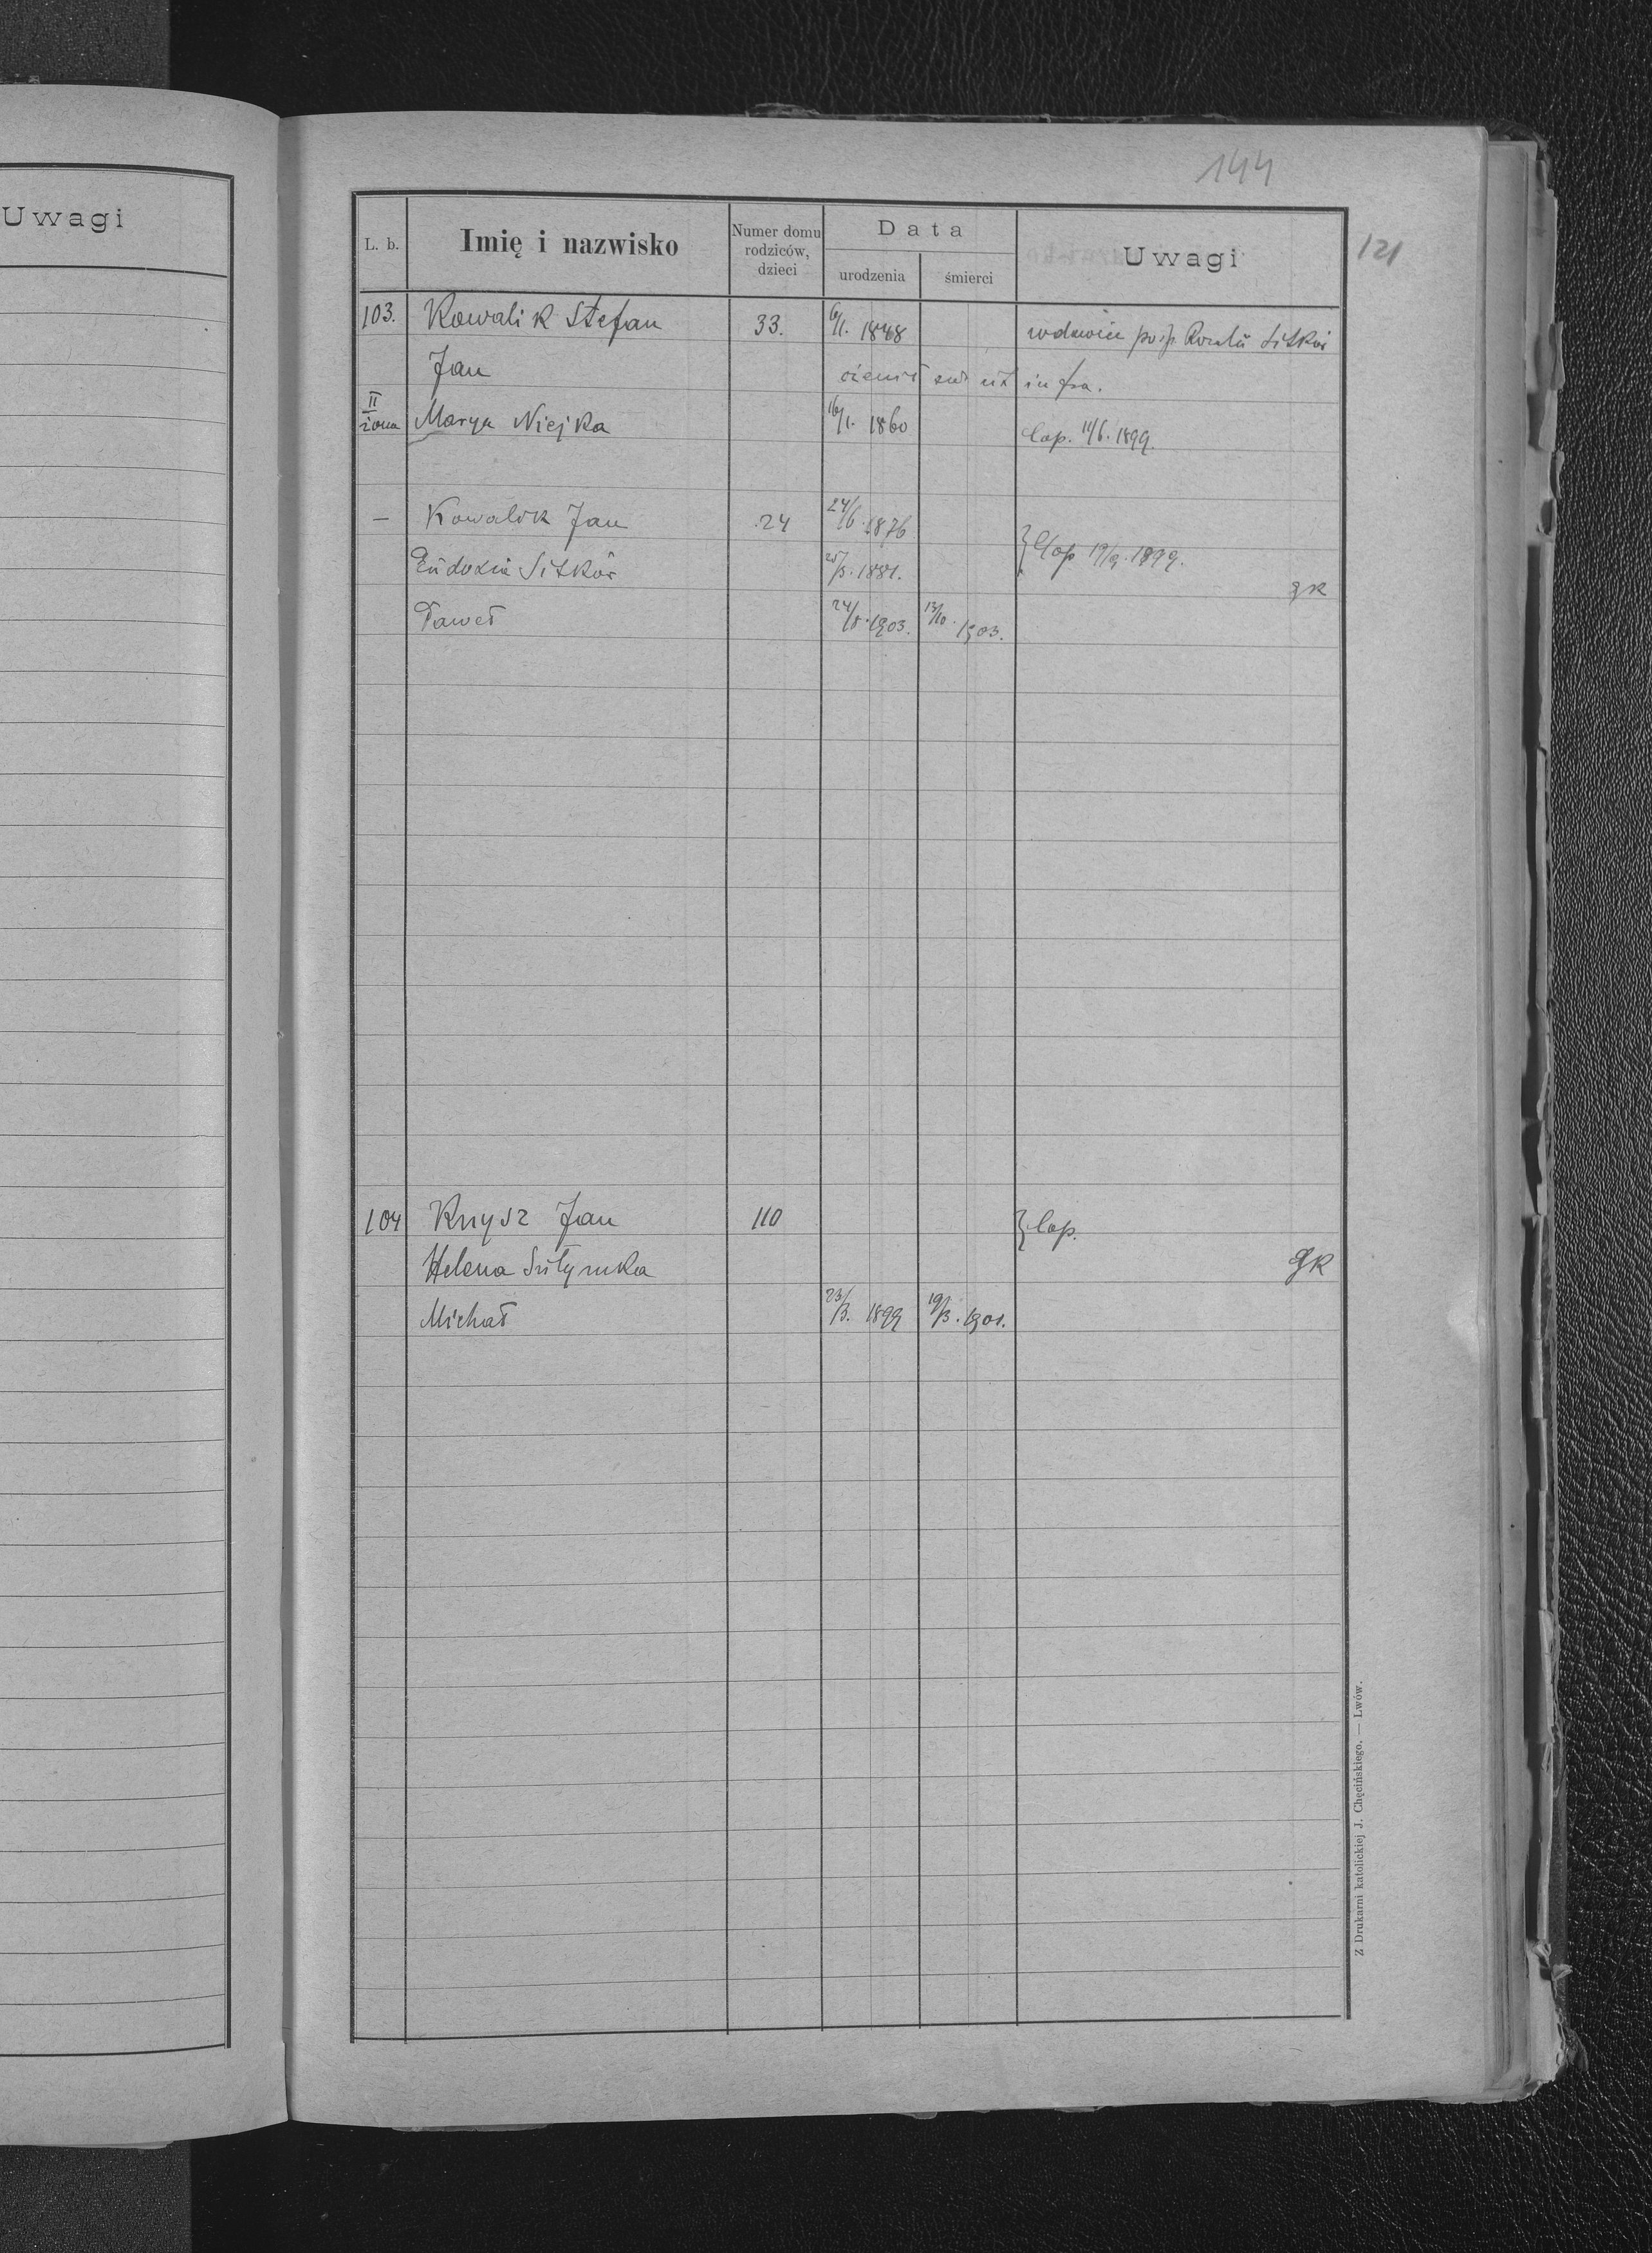 Uwagi
144
121
L. b.
Imię i nazwisko
Numer domu
rodziców,
dzieci
Data
urodzenia
śmierci
Uwagi
103. Kowalik Stefan 33. 6/11. 1848 wdowiec po śp. Rozalii Sitkoś
Jan ożenił ut infra.
II żona Marya Niejka 16/1. 1860 Cop. 11/6. 1899.
— Kowalik Jan 24 24/6. 1876
Eudoxia Sitkoś 1881. } Cop 19/9. 1899.
gk
Paweł 24/8. 1903. 13/10. 1903.
104 Knysz Jan 110 } Cop.
Helena gk
Michał 23/3. 1899 19/3. 1901.
Z Drukarni katolickiej J. Chęcińskiego. — Lwów.